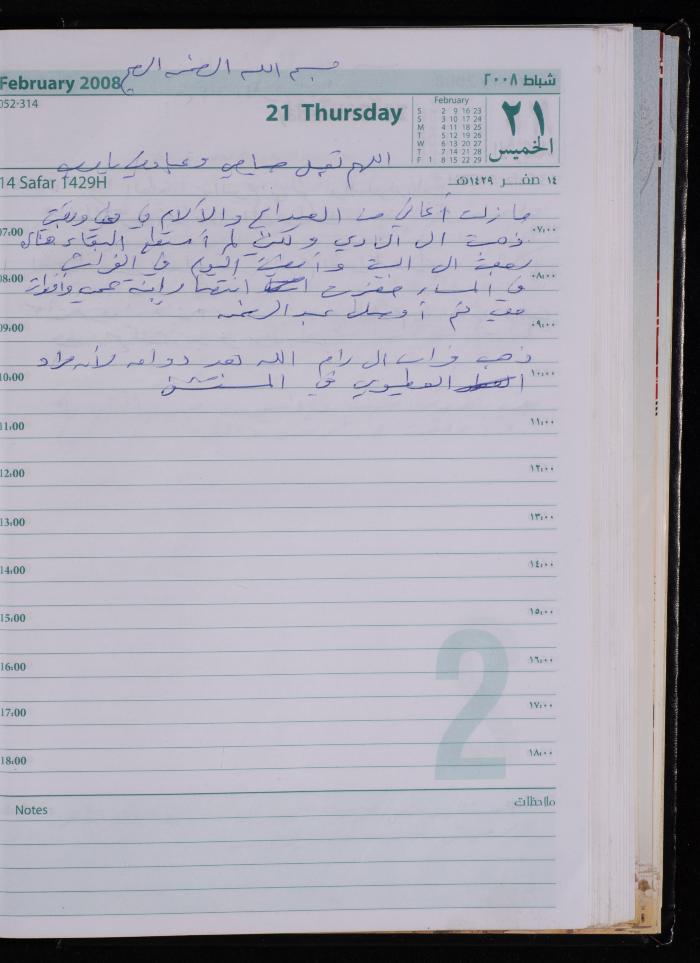 بسم الله الرحمن الرحيم
February 2008
شباط ٢٠٠٨
052-314
21 Thursday
February
S 2 9 16 23
S 3 10 17 24
M 4 11 18 25
T 5 12 19 26
W 6 13 20 27
T 7 14 21 28
F 1 8 15 22 29
٢١
الخميس
اللهم تقبل صيامي وعبادتي يا رب
14 Safar 1429H
١٤ صفر ١٤٢٩هـ
ما زلت أعاني من الصداع والآلام في
07:00 ٠٧:٠٠
ذهبت الى النادي ولكني لم أستطع البقاء هناك
رجعت الى البيت وأمضيت اليوم في الفراش
08:00 ٠٨:٠٠
في المساء حضرت انتصار ابنة عمي
ثم أوصل عبد الرحمن
09:00 ٠٩:٠٠
ذهب الى رام الله بعد دوامه لأنه
10:00 ١٠:٠٠
العطيوي في المستشفى
11:00 ١١:٠٠
12:00 ١٢:٠٠
13:00 ١٣:٠٠
14:00 ١٤:٠٠
15:00 ١٥:٠٠
16:00 ١٦:٠٠
17:00 ١٧:٠٠
18:00 ١٨:٠٠
2
Notes
ملاحظات